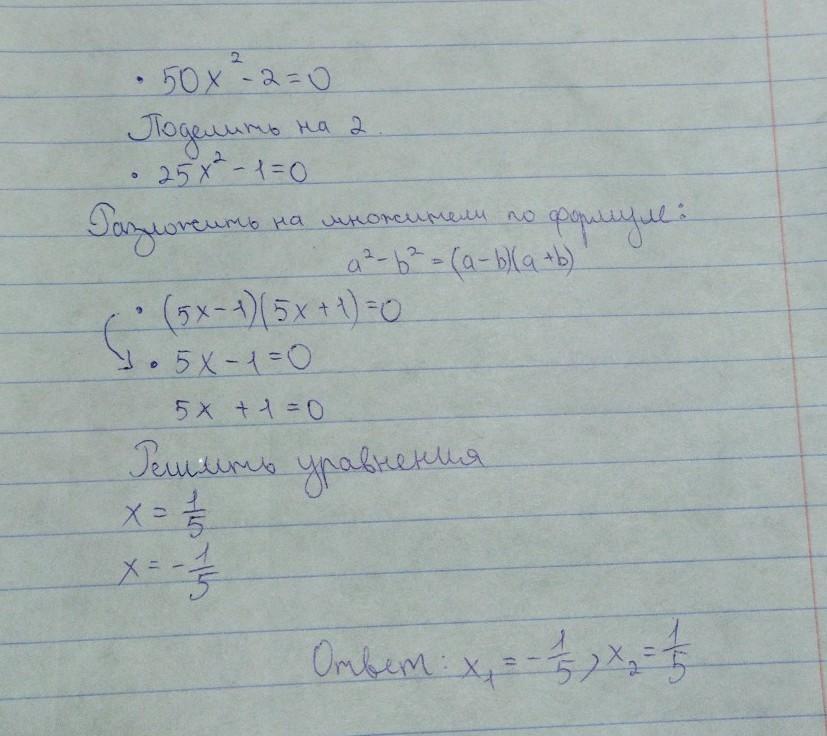 • 50x² - 2 = 0
Поделить на 2.
• 25x² - 1 = 0
Разложить на множители по формуле:
a² - b² = (a - b)(a + b)
• (5x - 1)(5x + 1) = 0
• 5x - 1 = 0
5x + 1 = 0
Решить уравнения
x = 1/5
x = - 1/5
Ответ: x₁ = - 1/5, x₂ = 1/5